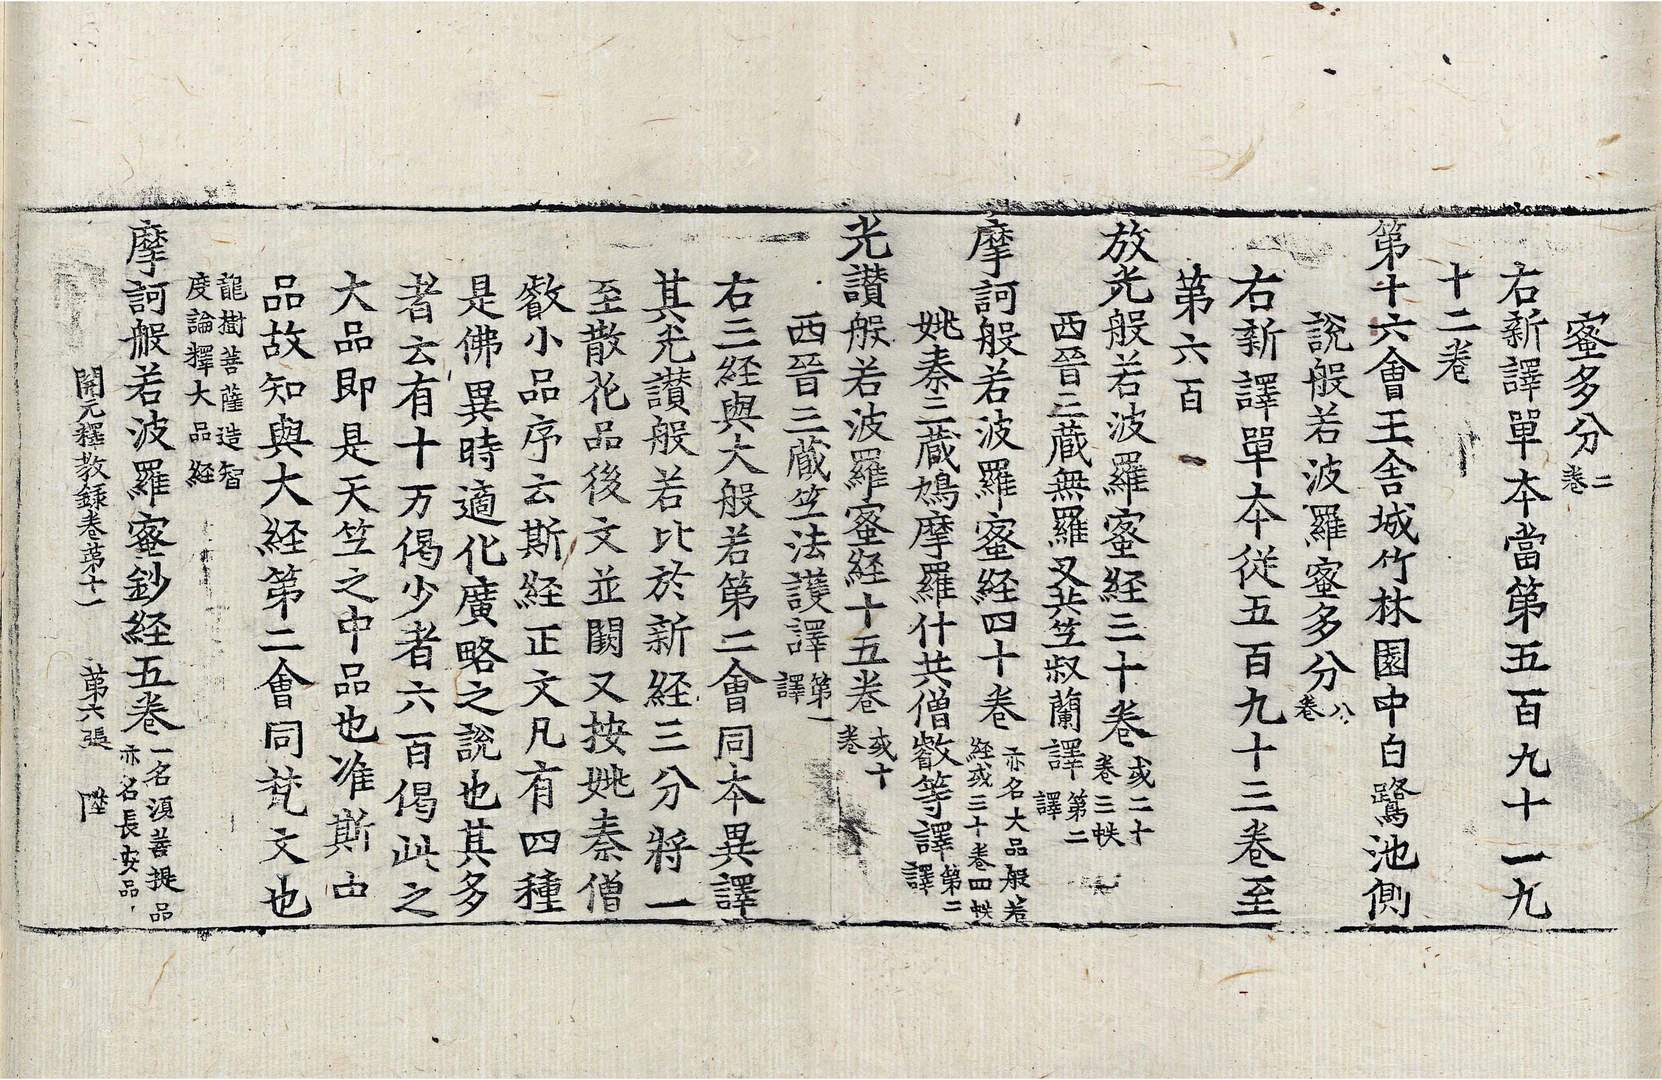 蜜多分二卷
右新譯單夲當第五百九十一九
十二卷
第十六會王舍城竹林園中白鷺池側
說般若波羅蜜多分八卷
右新譯單夲従五百九十三卷至
第六百
放光般若波羅蜜経三十卷或二十卷三帙
西晉三藏無羅叉共竺叔蘭譯第二譯
摩訶般若波羅蜜経四十卷亦名大品般若経或三十卷四帙
姚秦三藏鳩摩羅什共僧叡等譯第二譯
光讃般若波羅蜜経十五卷或十卷
西晉三藏竺法護譯第一譯
右三経與大般若第二會同夲異譯
其光讃般若比於新経三分將一
至散花品後文並闕又按姚秦僧
叡小品序云斯経正文凡有四種
是佛異時適化廣略之說也其多
者云有十万偈少者六百偈此之
大品即是天竺之中品也准斯
品故知與大経第二會同梵文也
龍樹菩薩造智
度論釋大品経
摩訶般若波羅蜜鈔経五卷一名須菩提品亦名長安品
開元釋教錄卷第十一 第六張